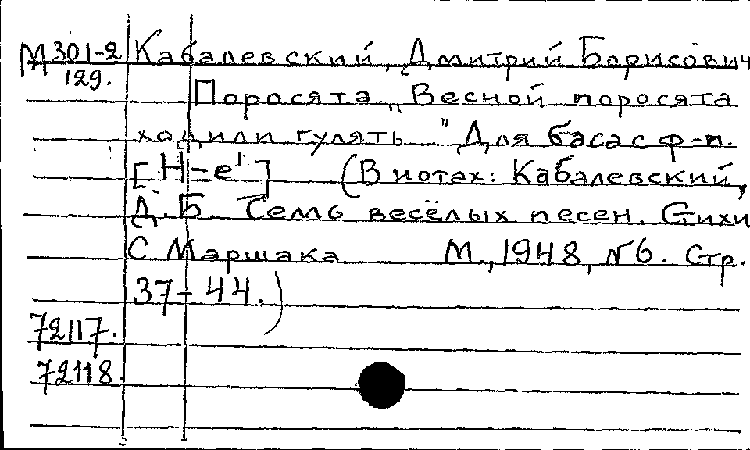 М 301-2 Кабалевский, Дмитрий Борисович
129.
Поросята „Весной поросята
ходили гулять..." Для баса с ф-п.
[H=e¹] (В нотах: Кабалевский,
Д.Б. Семь весёлых песен. Стихи
С Маршака М., 1948, №6. Стр.
37-44.)
72117.
72118.